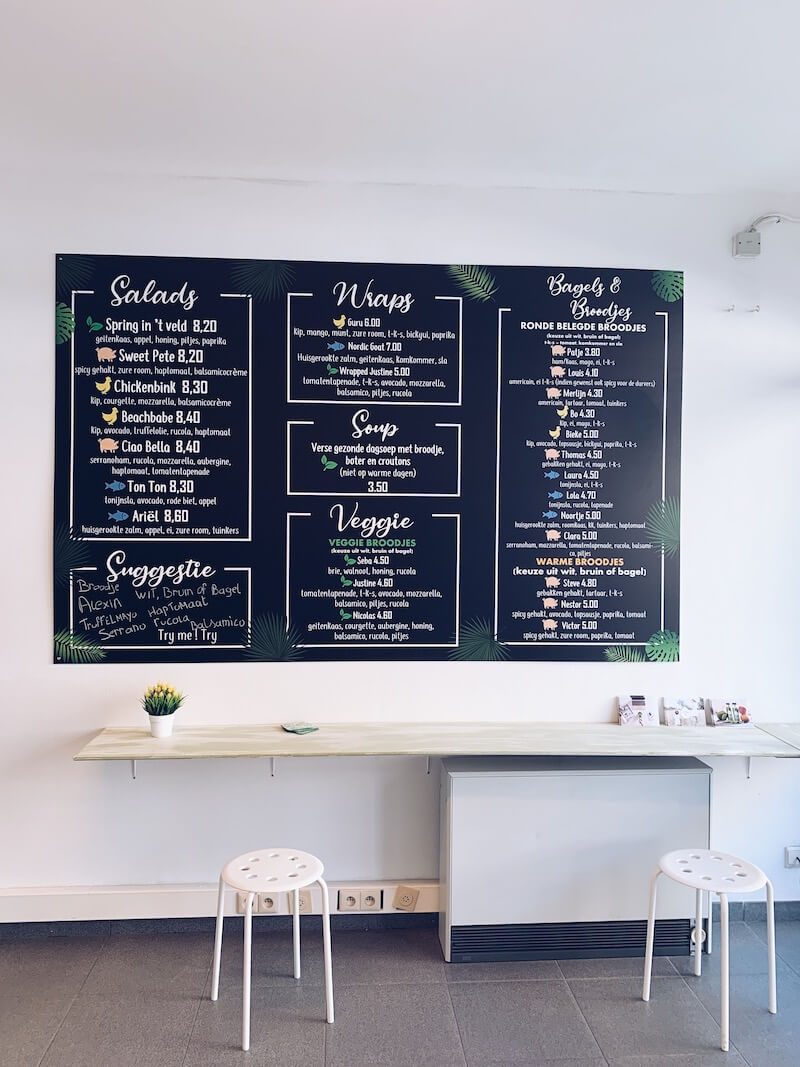 Salads
Spring in 't veld 8,20
geitenkaas, appel, honing, pitjes, paprika
Sweet Pete 8,20
spicy gehakt, zure room, haptomaat, balsamicocrème
Chickenbink 8,30
kip, courgette, mozzarella, balsamicocrème
Beachbabe 8,40
kip, avocado, truffelolie, rucola, haptomaat
Ciao Bella 8,40
serranoham, rucola, mozzarella, aubergine,
haptomaat, tomatentapenade
Ton Ton 8,30
tonijnsla, avocado, rode biet, appel
Ariël 8,60
huisgerookte zalm, appel, ei, zure room, tuinkers
Suggestie
Broodje WIT, Bruin of Bagel
Alexin
Truffelmayo Haptomaat
Serrano rucola Balsamico
Try me! Try
Wraps
Guru 6.00
kip, mango, munt, zure room, t-k-s, bickyui, paprika
Nordic Goat 7.00
Huisgerookte zalm, geitenkaas, komkommer, sla
Wrapped Justine 5.00
tomatentapenade, t-k-s, avocado, mozzarella,
balsamico, pitjes, rucola
Soup
Verse gezonde dagsoep met broodje,
boter en croutons
(niet op warme dagen)
3.50
Veggie
VEGGIE BROODJES
(keuze uit wit, bruin of bagel)
Seba 4.50
brie, walnoot, honing, rucola
Justine 4.60
tomatentapenade, t-k-s, avocado, mozzarella,
balsamico, pitjes, rucola
Nicolas 4.60
geitenkaas, courgette, aubergine, honing,
balsamico, rucola, pitjes
Bagels &
Broodjes
RONDE BELEGDE BROODJES
(keuze uit wit, bruin of bagel)
t-k-s = tomaat, komkommer en sla
Patje 3.80
ham/kaas, mayo, ei, t-k-s
Louis 4.10
americain, ei t-k-s (indien gewenst ook spicy voor de durvers)
Merlijn 4.30
americain, tartaar, tomaat, tuinkers
Bo 4.30
kip, ei, mayo, t-k-s
Bieke 5.00
kip, avocado, topsausje, bickyui, paprika, t-k-s
Thomas 4.50
gebakken gehakt, ei, mayo, t-k-s
Laura 4.50
tonijnsla, ei, t-k-s
Lola 4.70
tonijnsla, rucola, tapenade
Noortje 5.00
huisgerookte zalm, roomkaas, KK, tuinkers, haptomaat
Clara 5.00
serranoham, mozzarella, tomatentapenade, rucola, balsami-
co, pitjes
WARME BROODJES
(keuze uit wit, bruin of bagel)
Steve 4.80
gebakken gehakt, tartaar, t-k-s
Nestor 5.00
spicy gehakt, avocado, topsausje, paprika, tomaat
Victor 5.00
spicy gehakt, zure room, paprika, tomaat